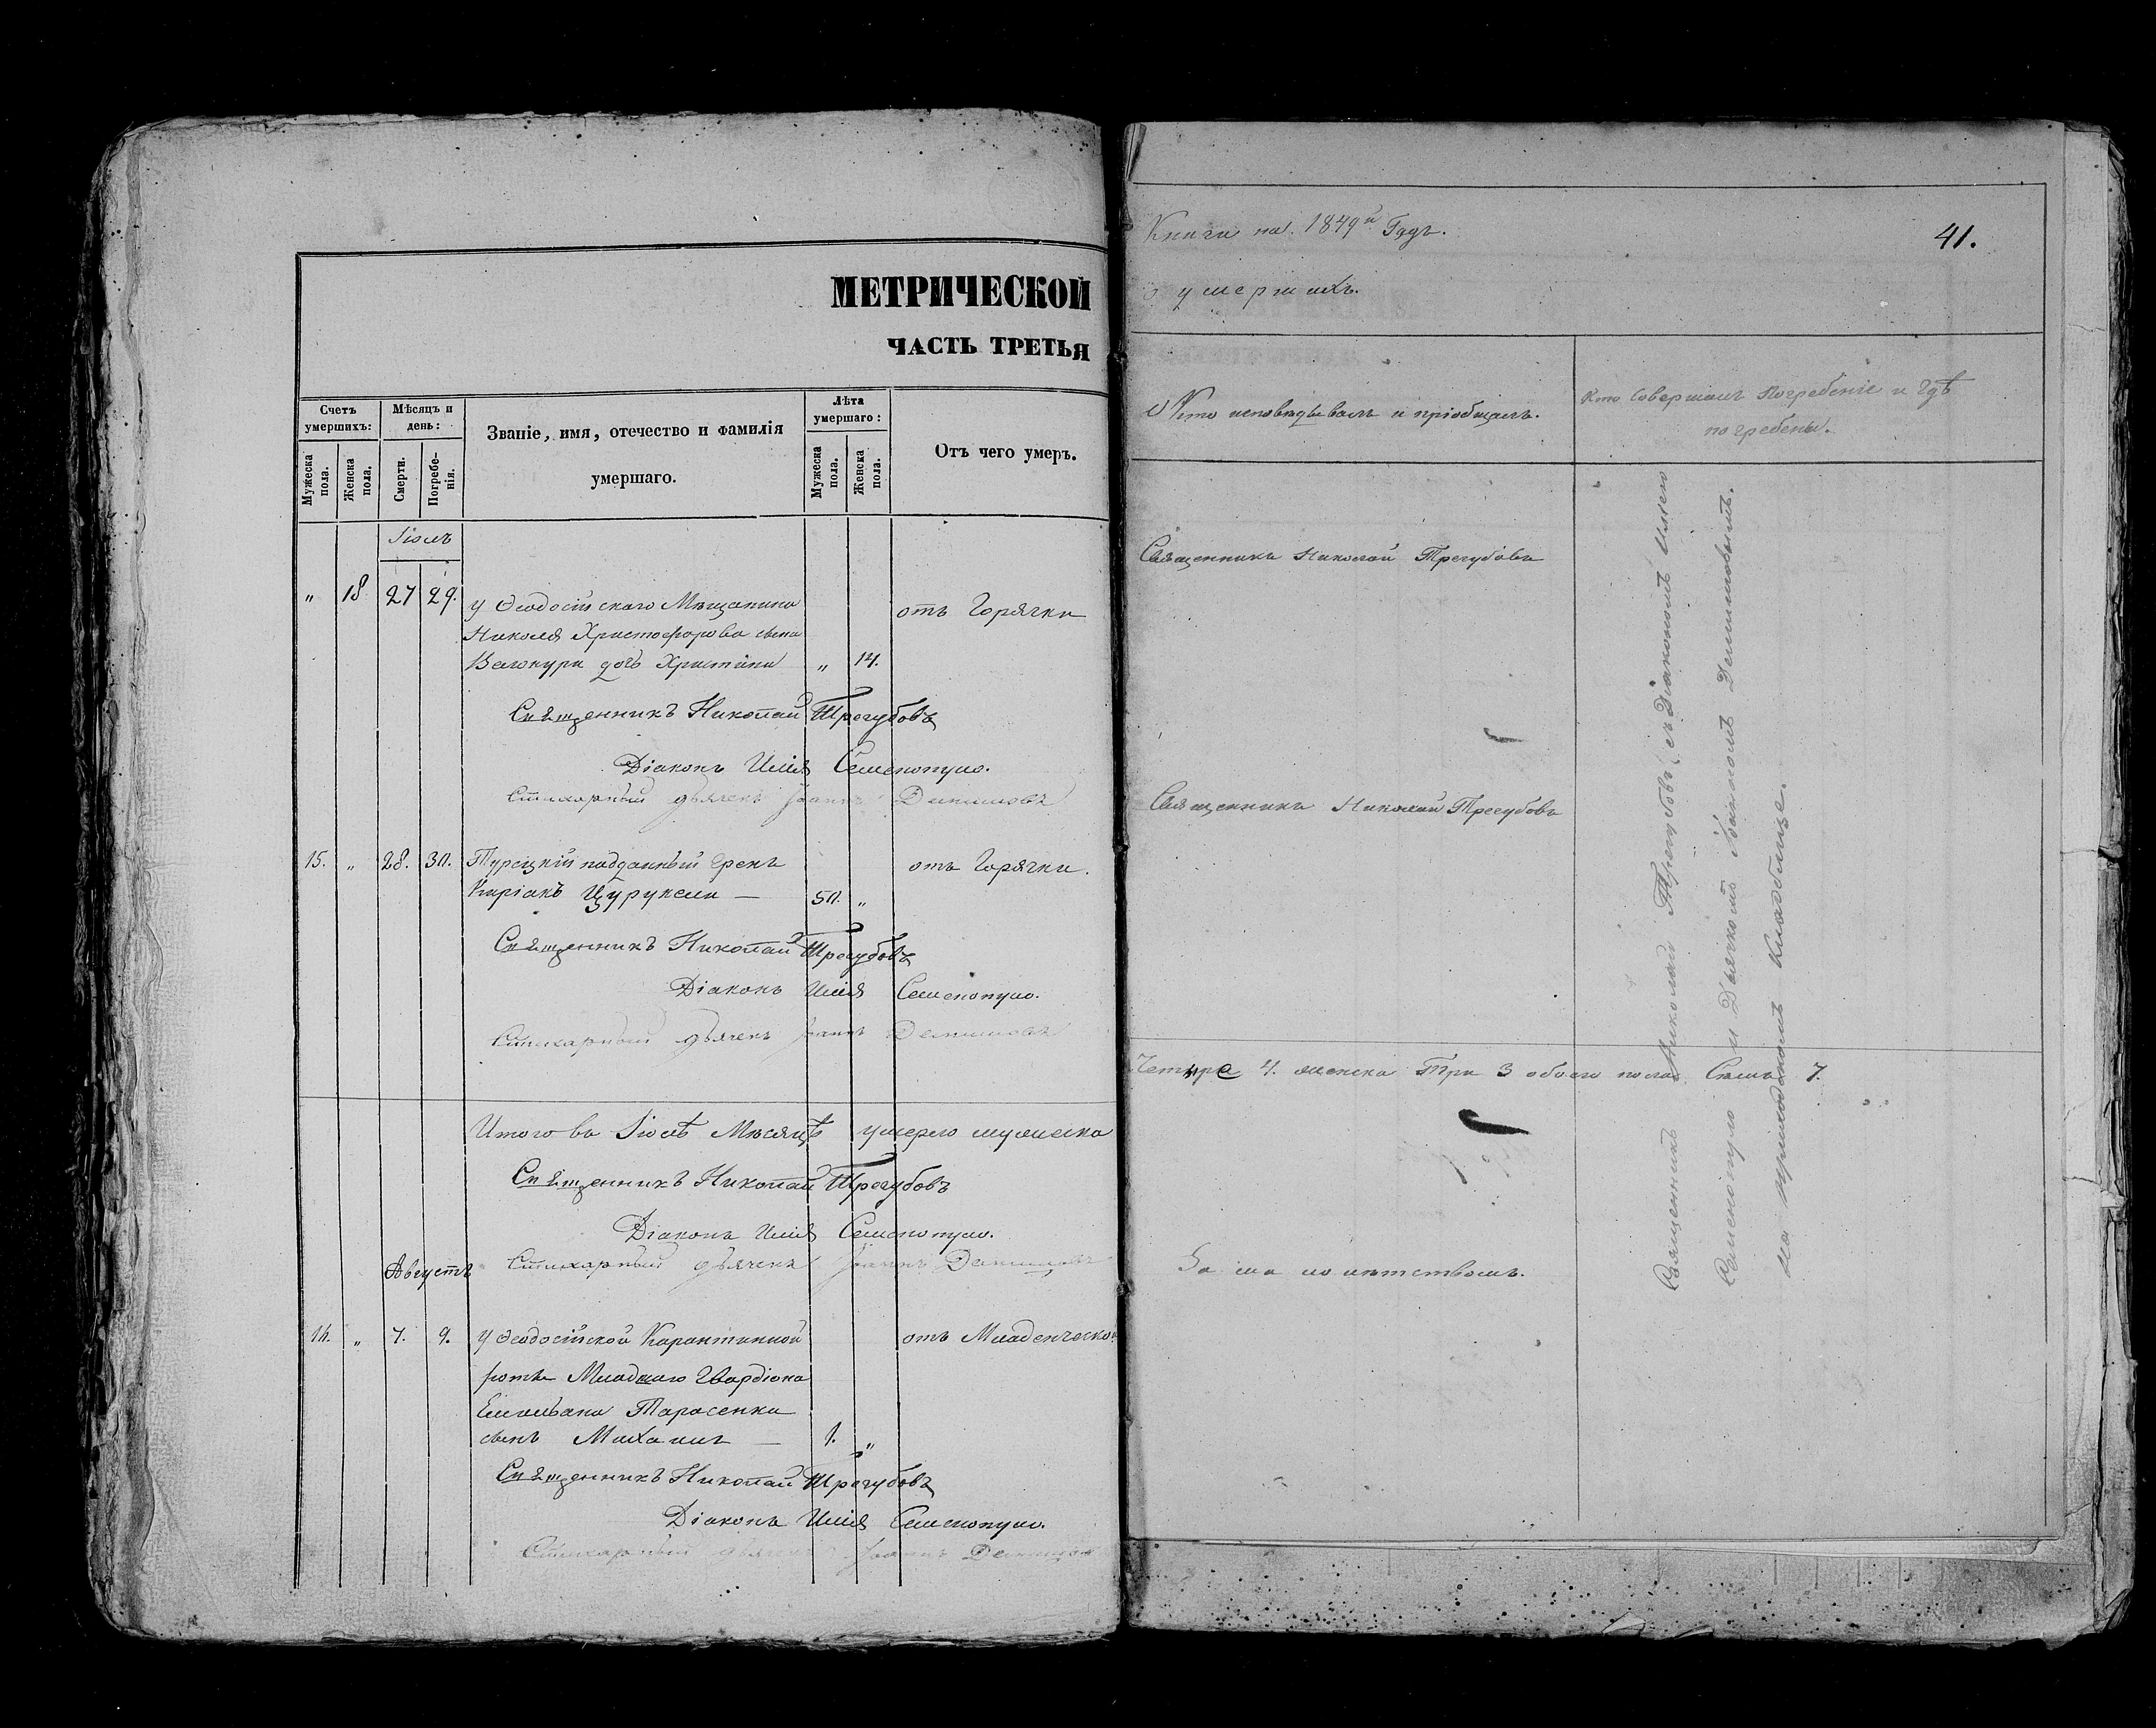 МЕТРИЧЕСКОЙ
ЧАСТЬ ТРЕТЬЯ
Счетъ умершихъ:
Мѣсяцъ и день:
Званіе, имя, отечество и фамилія
умершаго.
Лѣта умершаго:
Отъ чего умеръ.
Мужеска пола.
Женска пола.
Смерти.
Погребе-нія.
Мужеска пола.
Женска пола.
Іюль
" 18 27 29. у Ѳеодосійскаго Мѣщанина отъ Горячки
Николая Христофорова сына
дочь Христина " 14.
Священникъ Николай Трегубовъ
Діаконъ Илія Семенопуло.
Стихарный дьячекъ Іоаннъ
15. " 28. 30. Турецкій подданный Грекъ отъ Горячки.
Киріакъ Цурукели — 50. "
Священникъ Николай Трегубовъ
Діаконъ Илія Семенопуло.
Стихарный дьячекъ Іоаннъ
Итого въ Іюлѣ Мѣсяцѣ умерло мужеска
Священникъ Николай Трегубовъ
Діаконъ Илія Семенопуло.
Августъ
Стихарный дьячекъ Іоаннъ
7. 9. у Ѳеодосійской Карантинной отъ Младенческой
роты Младшаго Гвардіона
Емельяна Тарасенка
сынъ Михаилъ — 1. "
Священникъ Николай Трегубовъ
Діаконъ Илія Семенопуло.
Стихарный дьячекъ Іоаннъ
Книги на 1849й Годъ.
41.
о умершихъ.
Кто исповѣдывалъ и пріобщалъ.
Кто совершалъ Погребеніе и гдѣ
погребены.
Священникъ Николай Трегубовъ
Священникъ Николай Трегубовъ
Четыре 4. женска Три 3 обоего пола Семь 7.
За малолѣтствомъ.
Священникъ Николай Трегубовъ съ Діакономъ Иліею
Семенопуло и Дьячкомъ Іоанномъ
на приходскомъ Кладбище.